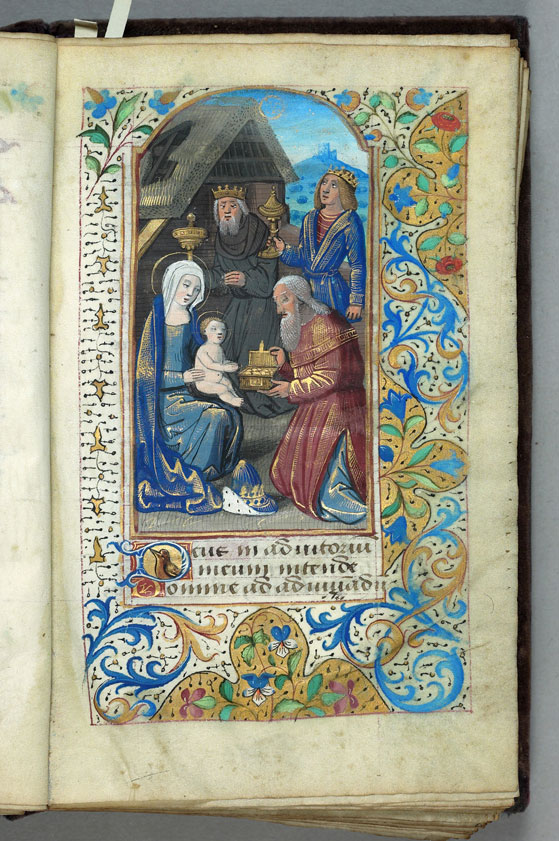 Deus in adiutoriu
meum intende
Domine ad adiuuadu